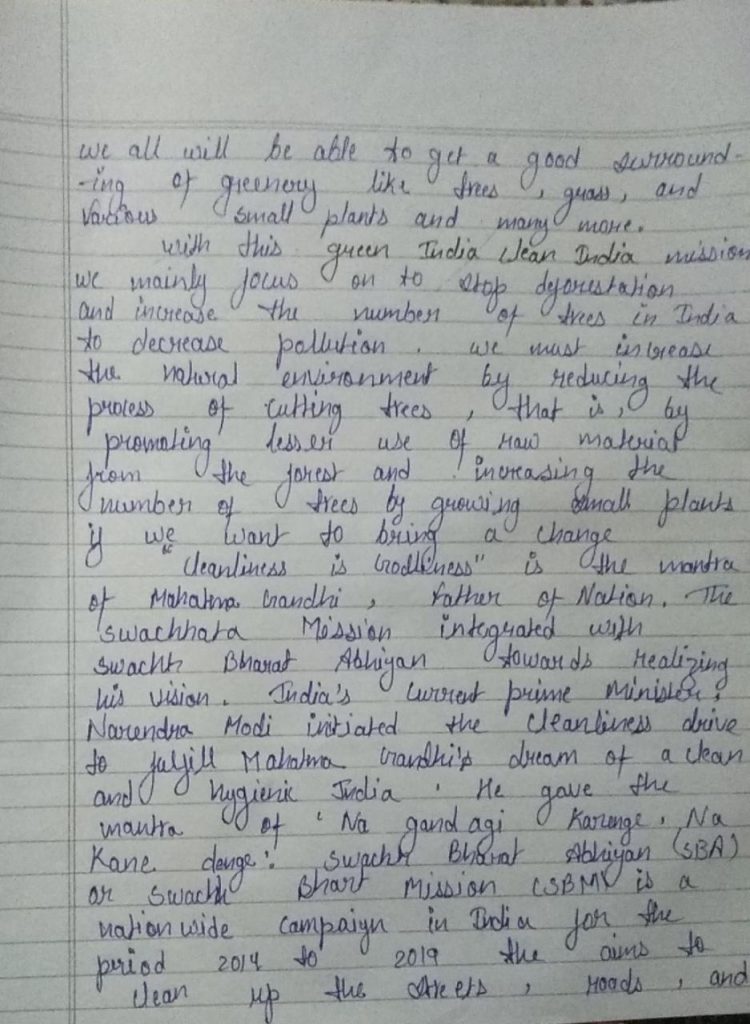 we all will be able to get a good surround-
-ing of greenery like trees, grass, and
various small plants and many more.
with this green India clean India mission
we mainly focus on to stop deforestation
and increase the number of trees in India
to decrease pollution. we must increase
the natural environment by reducing the
process of cutting trees, that is, by
promoting lesser use of raw material
from the forest and increasing the
number of trees by growing small plants
if we want to bring a change
"Cleanliness is Godliness" is the mantra
of Mahatma Gandhi, Father of Nation. The
Swachhata Mission integrated with
Swachh Bharat Abhiyan towards realizing
his vision. India's current prime Minister,
Narendra Modi initiated the cleanliness drive
to fulfill Mahatma Gandhi's dream of a clean
and hygienic India. He gave the
mantra of 'Na gandagi Karenge, Na
Kane denge'. Swachh Bharat Abhiyan (SBA)
or Swachh Bhart Mission (SBM) is a
nation wide campaign in India for the
period 2014 to 2019 the aims to
clean up the streets, roads, and